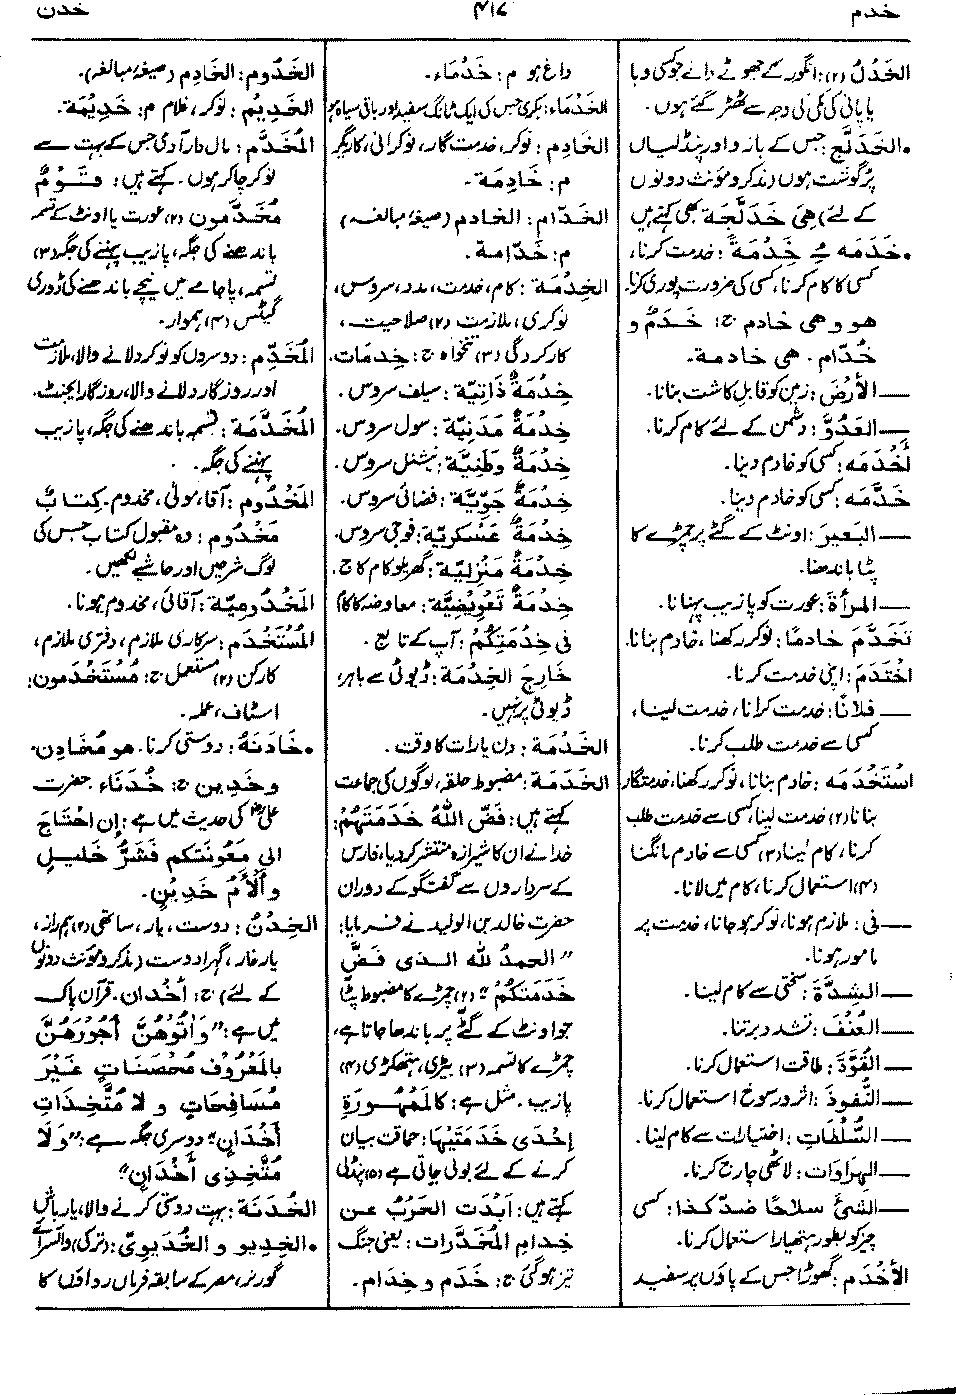 خدم
۴۱۷
خدن
الخَدْلُ (۲): انگور کے چھوٹے دانے جو کسی وبا
یا پانی کی کمی کی وجہ سے ٹھٹھر گئے ہوں۔
•الخَدَلَّج: جس کے بازو اور پنڈلیاں
پُرگوشت ہوں (مذکر و مؤنث دونوں
کے لئے) هِيَ خَدَلَّجَة بھی کہتے ہیں
•خَدَمَه ـُ خِدْمَةً: خدمت کرنا،
کسی کا کام کرنا، کسی کی ضرورت پوری کرنا۔
هو وهي خادم ج: خَدَمٌ و
خُدّام۔ هي خادمة۔
—الأَرْضَ: زمین کو قابلِ کاشت بنانا۔
—العَدُوَّ: دشمن کے لئے کام کرنا۔
أَخْدَمَه: کسی کو خادم دینا۔
خَدَّمَه: کسی کو خادم دینا۔
—البَعِيرَ: اونٹ کے گٹے پر چمڑے کا
پٹا باندھنا۔
—المرأةَ: عورت کو پازیب پہنانا۔
تَخَدَّمَ خادمًا: نوکر رکھنا، خادم بنانا۔
اخْتَدَمَ: اپنی خدمت کرنا۔
—فلانًا: خدمت کرانا، خدمت لینا،
کسی سے خدمت طلب کرنا۔
اسْتَخْدَمَه: خادم بنانا، نوکر رکھنا، خدمتگار
بنانا (۲) خدمت لینا، کسی سے خدمت طلب
کرنا، کام لینا (۳) کسی سے خادم مانگنا
(۴) استعمال کرنا، کام میں لانا۔
—في: ملازم ہونا، نوکر ہوجانا، خدمت پر
مامور ہونا۔
—الشِدَّةَ: سختی سے کام لینا۔
—العُنْفَ: تشدد برتنا۔
—القُوَّةَ: طاقت استعمال کرنا۔
—النُّفوذَ: اثر و رسوخ استعمال کرنا۔
—السُّلُطاتِ: اختیارات سے کام لینا۔
—الهِرَاوات: لاٹھی چارج کرنا۔
—الشئَ سلاحًا ضدَّ كذا: کسی
چیز کو بطور ہتھیار استعمال کرنا۔
الأَخْدَم: گھوڑا جس کے پاؤں پر سفید
داغ ہو م: خَدْمَاء۔
الخَدْمَاء: بکری جس کی ایک ٹانگ سفید اور باقی سیاہ ہو
الخَادِم: نوکر، خدمت گار، نوکرانی، کاریگر
م: خَادِمَة۔
الخَدّام: الخادم (صیغۂ مبالغہ)
م: خَدّامة۔
الخِدْمَة: کام، خدمت، مدد، سروس،
نوکری، ملازمت (۲) صلاحیت،
کارکردگی (۳) تنخواہ ج: خِدمات۔
خِدْمَةٌ ذَاتِيَّة: سیلف سروس۔
خِدْمَةٌ مَدَنِيَّة: سول سروس۔
خِدْمَةٌ وَطَنِيَّة: نیشنل سروس۔
خِدْمَةٌ جَوِّيَّة: فضائی سروس۔
خِدْمَةٌ عَسْكَرِيَّة: فوجی سروس۔
خِدْمَةٌ مَنْزِلِيَّة: گھریلو کام کاج۔
خِدْمَةٌ تَعْوِيضِيَّة: معاوضہ کا کام
في خِدْمَتِكُمْ: آپ کے تابع۔
خَارِجَ الخِدْمَة: ڈیوٹی سے باہر،
ڈیوٹی پر نہیں۔
الخَدْمَة: دن یا رات کا وقت۔
الخَدَمَة: مضبوط حلقہ، لوگوں کی جماعت
کہتے ہیں: فَضَّ اللهُ خَدَمَتَهُمْ:
خدا نے ان کا شیرازہ منتشر کردیا، فارس
کے سرداروں سے گفتگو کے دوران
حضرت خالد بن الولید نے فرمایا:
"الحمدُ لله الـذي فَضَّ
خَدَمَتَكُمْ" (۲) چمڑے کا مضبوط پٹا
جو اونٹ کے گٹے پر باندھا جاتا ہے،
چمڑے کا تسمہ (۳) بیڑی، ہتھکڑی (۴)
پازیب۔ مثل ہے: كَالمَمْهُورَةِ
إحْدَى خَدَمَتَيْها: حماقت بیان
کرنے کے لئے بولی جاتی ہے (۵) پنڈلی
کہتے ہیں: أَبْدَتِ الحَرْبُ عـن
خِدامِ المُخَدَّرات: یعنی جنگ
تیز ہوگئی ج: خَدَم و خِدَام۔
الخَدُوم: الخادِم (صیغۂ مبالغہ)۔
الخَدِيمُ: نوکر، غلام م: خَدِيْمَة۔
المُخَدَّم: مال دار آدمی جس کے بہت سے
نوکر چاکر ہوں۔ کہتے ہیں: قَوْمٌ
مُخَدَّمون (۲) عورت یا اونٹ کے تسمہ
باندھنے کی جگہ، پازیب پہننے کی جگہ (۳)
تسمہ، پاجامے میں نیچے باندھنے کی ڈوری
گیٹس (۴) ہموار۔
المُخَدِّم: دوسروں کو نوکر دلانے والا، ملازمت
اور روزگار دلانے والا، روزگار ایجنٹ۔
المُخَدَّمَة: تسمہ باندھنے کی جگہ، پازیب
پہننے کی جگہ۔
المَخْدُوم: آقا، مولیٰ، مخدوم۔ كِتَابٌ
مَخْدُوم: وہ مقبول کتاب جس کی
لوگ شرحیں اور حاشیے لکھیں۔
المَخْدُومِيَّة: آقائی، مخدوم ہونا۔
المُسْتَخْدَم: سرکاری ملازم، دفتری ملازم،
کارکن (۲) مستعمل ج: مُسْتَخْدَمون:
اسٹاف، عملہ۔
•خَادَنَهُ: دوستی کرنا۔ هو مُخَادِن۔
وخَدِين ج: خُدَناء۔ حضرت
علیؓ کی حدیث میں ہے: إنِ احْتَاجَ
إلى مَعُونَتِكم فَشَرُّ خَلِيلٍ
وأَلْأَمُ خَدِيْنٍ۔
الخِدْنُ: دوست، یار، ساتھی (۲) ہم راز،
یارِ غار، گہرا دوست (مذکر و مؤنث دونوں
کے لئے) ج: أَخْدان۔ قرآن پاک
میں ہے: "وَآتُوهُنَّ أُجُورَهُنَّ
بِالْمَعْرُوفِ مُحْصَنَاتٍ غَيْرَ
مُسَافِحَاتٍ وَلَا مُتَّخِذَاتِ
أَخْدَانٍ" دوسری جگہ ہے: "وَلَا
مُتَّخِذِي أَخْدَانٍ"
الخُدَنَة: بہت دوستی کرنے والا، یار باش
•الخِدِيو و الخُدَيوِيّ: (ترکی) وائسرائے
گورنر، مصر کے سابقہ فرماں رواؤں کا